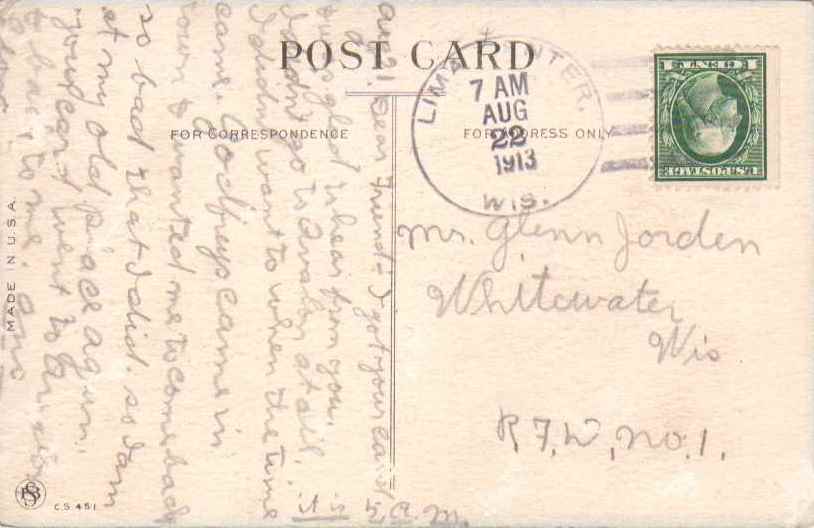 POST CARD
FOR CORRESPONDENCE
FOR ADDRESS ONLY
LIMA CENTER,
7 AM
AUG
22
1913
WIS.
1 CENT 1
U.S. POSTAGE
Mr. Glenn Jorden
Whitewater
Wis
R.F.D, no. 1.
Aug 21. Dear Friend - I got your card
was glad to hear from you.
I didn't go to Avalon at all.
I didn't want to when the time
came. Godfreys came in
town & wanted me to come back
so bad that I did. so I am
at my old place again.
your card went to
& back to me. ans
it is 5 a. m.
MADE IN U.S.A.
C.S 451